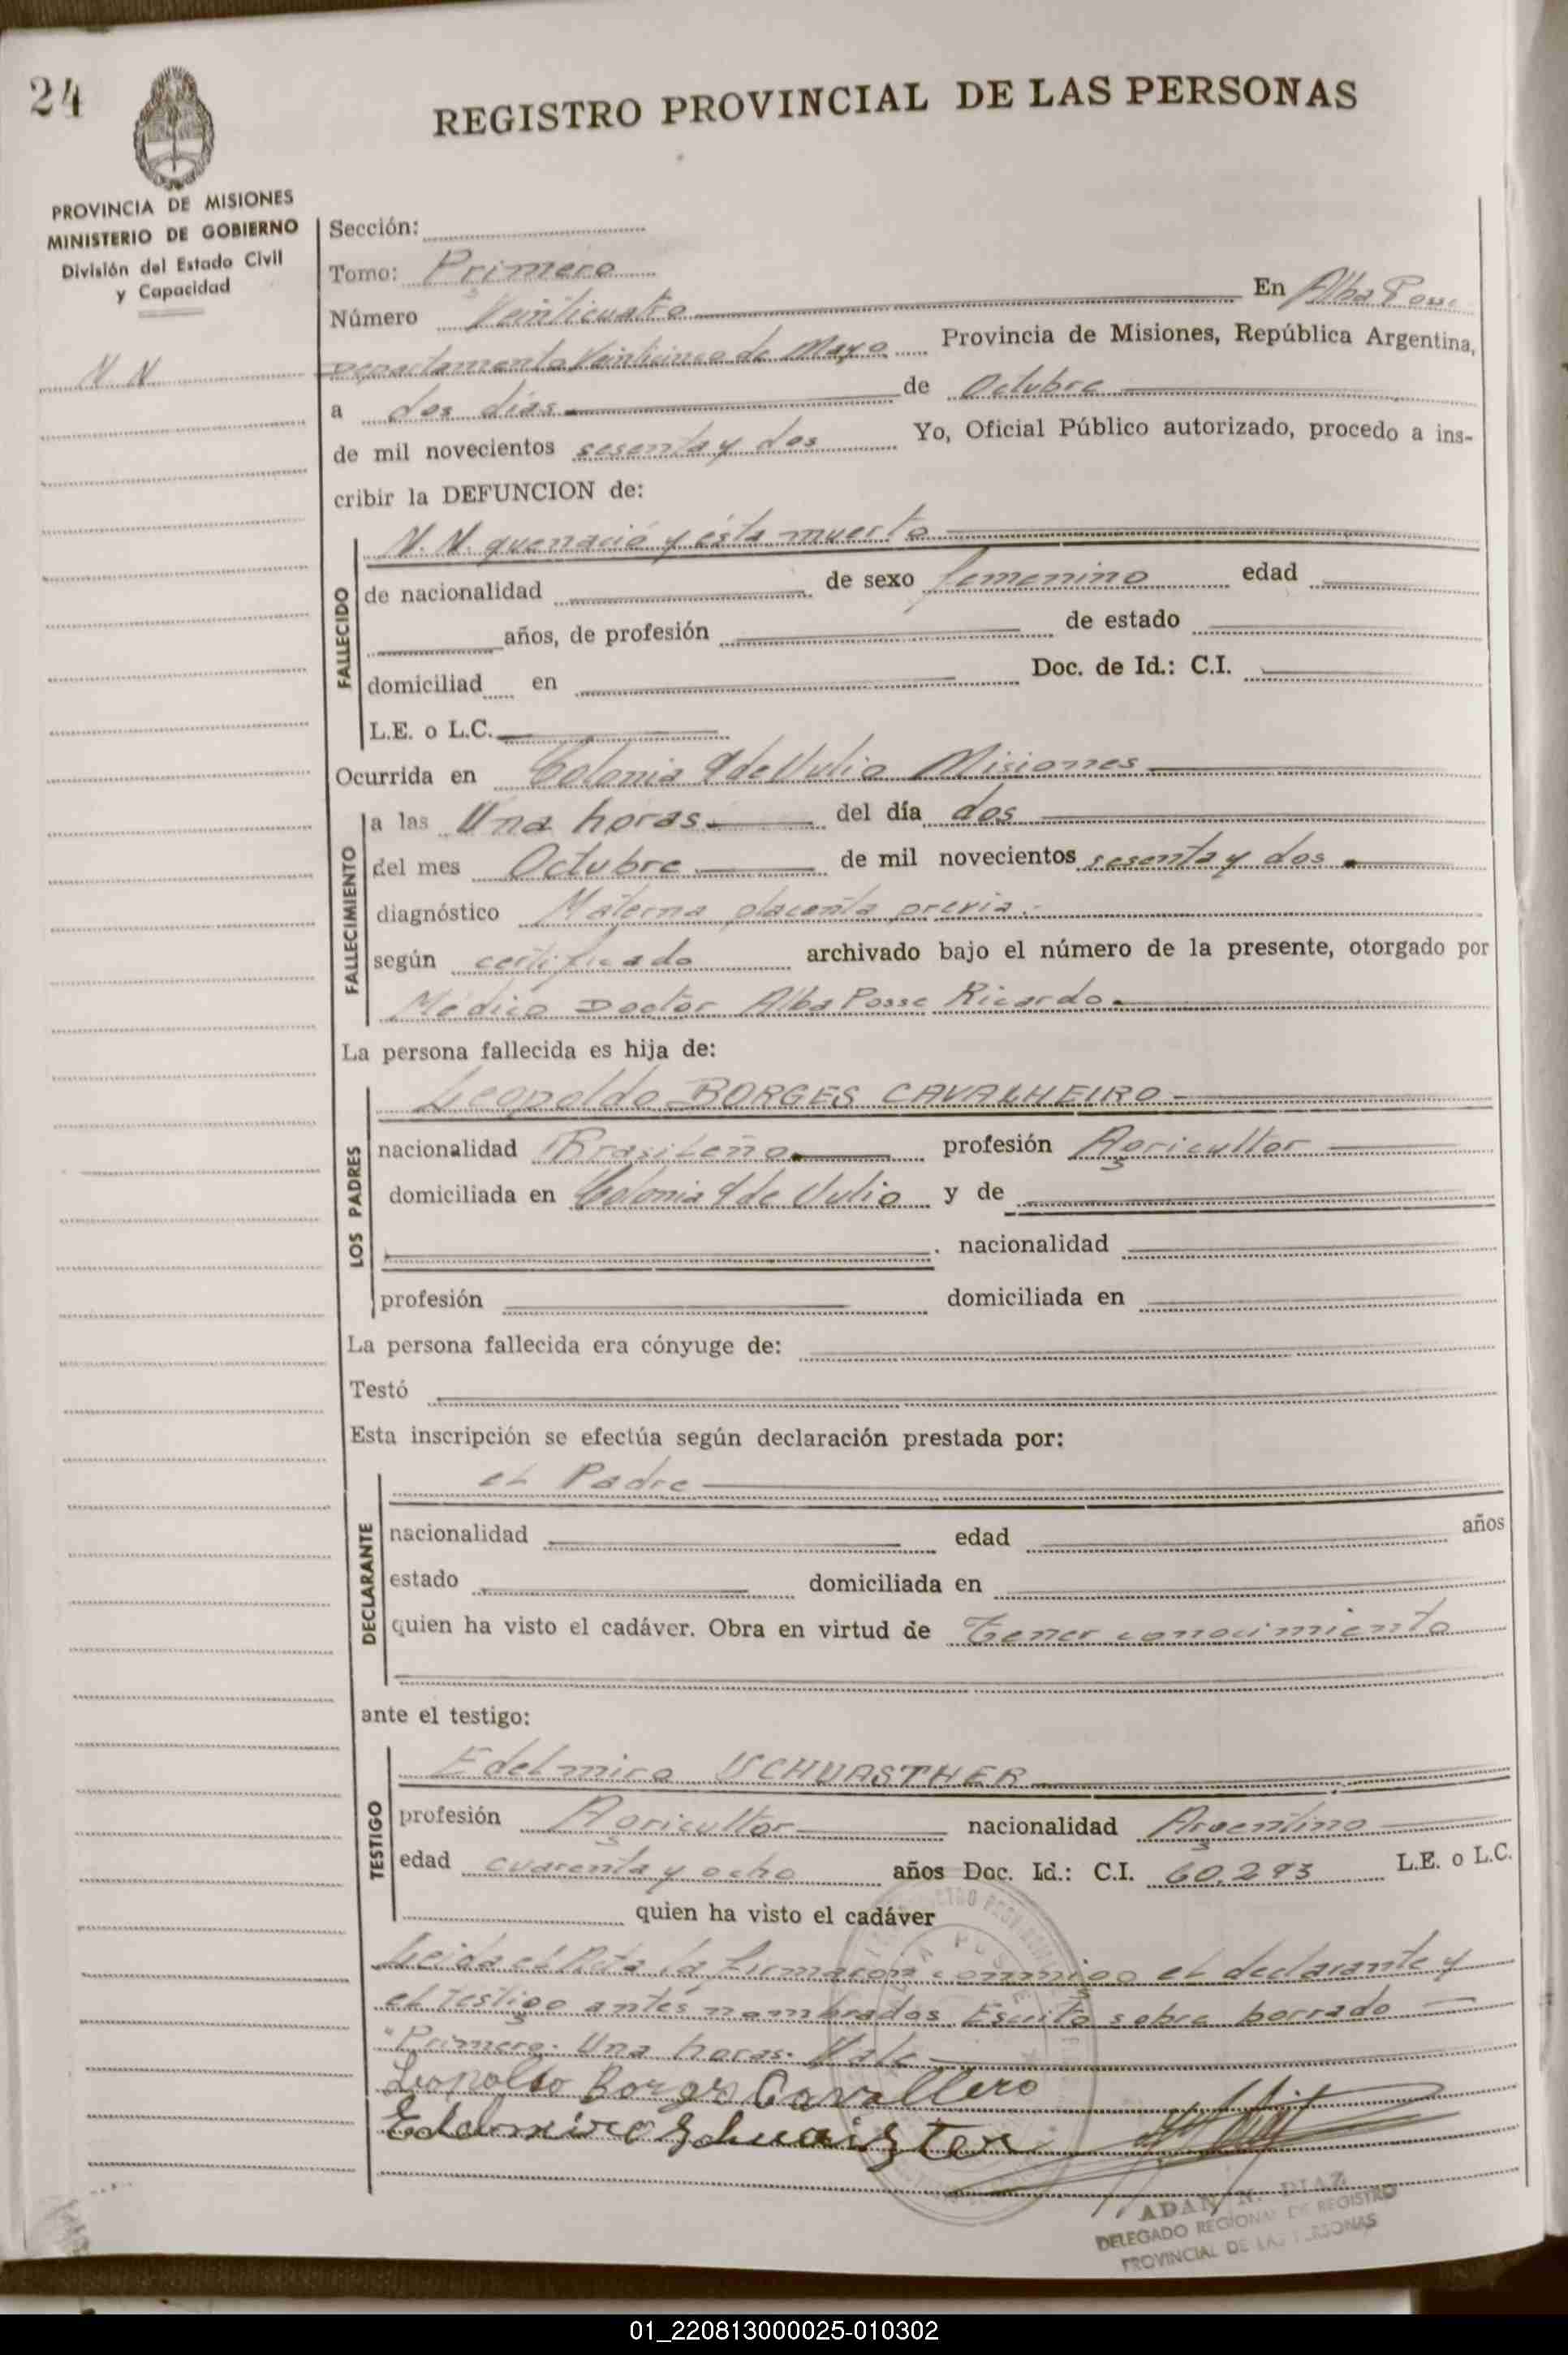 24
REGISTRO PROVINCIAL DE LAS PERSONAS
PROVINCIA DE MISIONES
MINISTERIO DE GOBIERNO
División del Estado Civil
y Capacidad
N N
Sección:
Tomo: Primero
Número Veinticuatro En Alba Posse
Departamento Veinticinco de Mayo Provincia de Misiones, República Argentina,
a dos días de Octubre
de mil novecientos sesenta y dos Yo, Oficial Público autorizado, procedo a ins-
cribir la DEFUNCION de:
FALLECIDO
N. N. que nació y ésta muerto
de nacionalidad de sexo femenino edad
años, de profesión de estado
domiciliad en Doc. de Id.: C.I.
L.E. o L.C.
Ocurrida en Colonia 9 de Julio Misiones
FALLECIMIENTO
a las Una horas. del día dos
del mes Octubre de mil novecientos sesenta y dos
diagnóstico Materna placenta previa.
según certificado archivado bajo el número de la presente, otorgado por
Médico Doctor Alba Posse Ricardo.
La persona fallecida es hija de:
LOS PADRES
Leopoldo BORGES CAVALHEIRO
nacionalidad Brasileño profesión Agricultor
domiciliada en Colonia 9 de Julio y de
nacionalidad
profesión domiciliada en
La persona fallecida era cónyuge de:
Testó
Esta inscripción se efectúa según declaración prestada por:
DECLARANTE
el Padre
nacionalidad edad años
estado domiciliada en
quien ha visto el cadáver. Obra en virtud de Tener conocimiento
ante el testigo:
TESTIGO
Edelmiro SCHUASTHER
profesión Agricultor nacionalidad Argentino
edad cuarenta y ocho años Doc. Id.: C.I. 60.293 L.E. o L.C.
quien ha visto el cadáver
Leida el Acta la firmaron conmigo el declarante y
el testigo antes nombrados. Escrito sobre borrado
"Primero. Una horas. Vale
Leopolso Borges Cavallero
Edelmiro Schuaister
ADAN N. DIAZ
DELEGADO REGIONAL DE REGISTRO
PROVINCIAL DE LAS PERSONAS
01_220813000025-010302